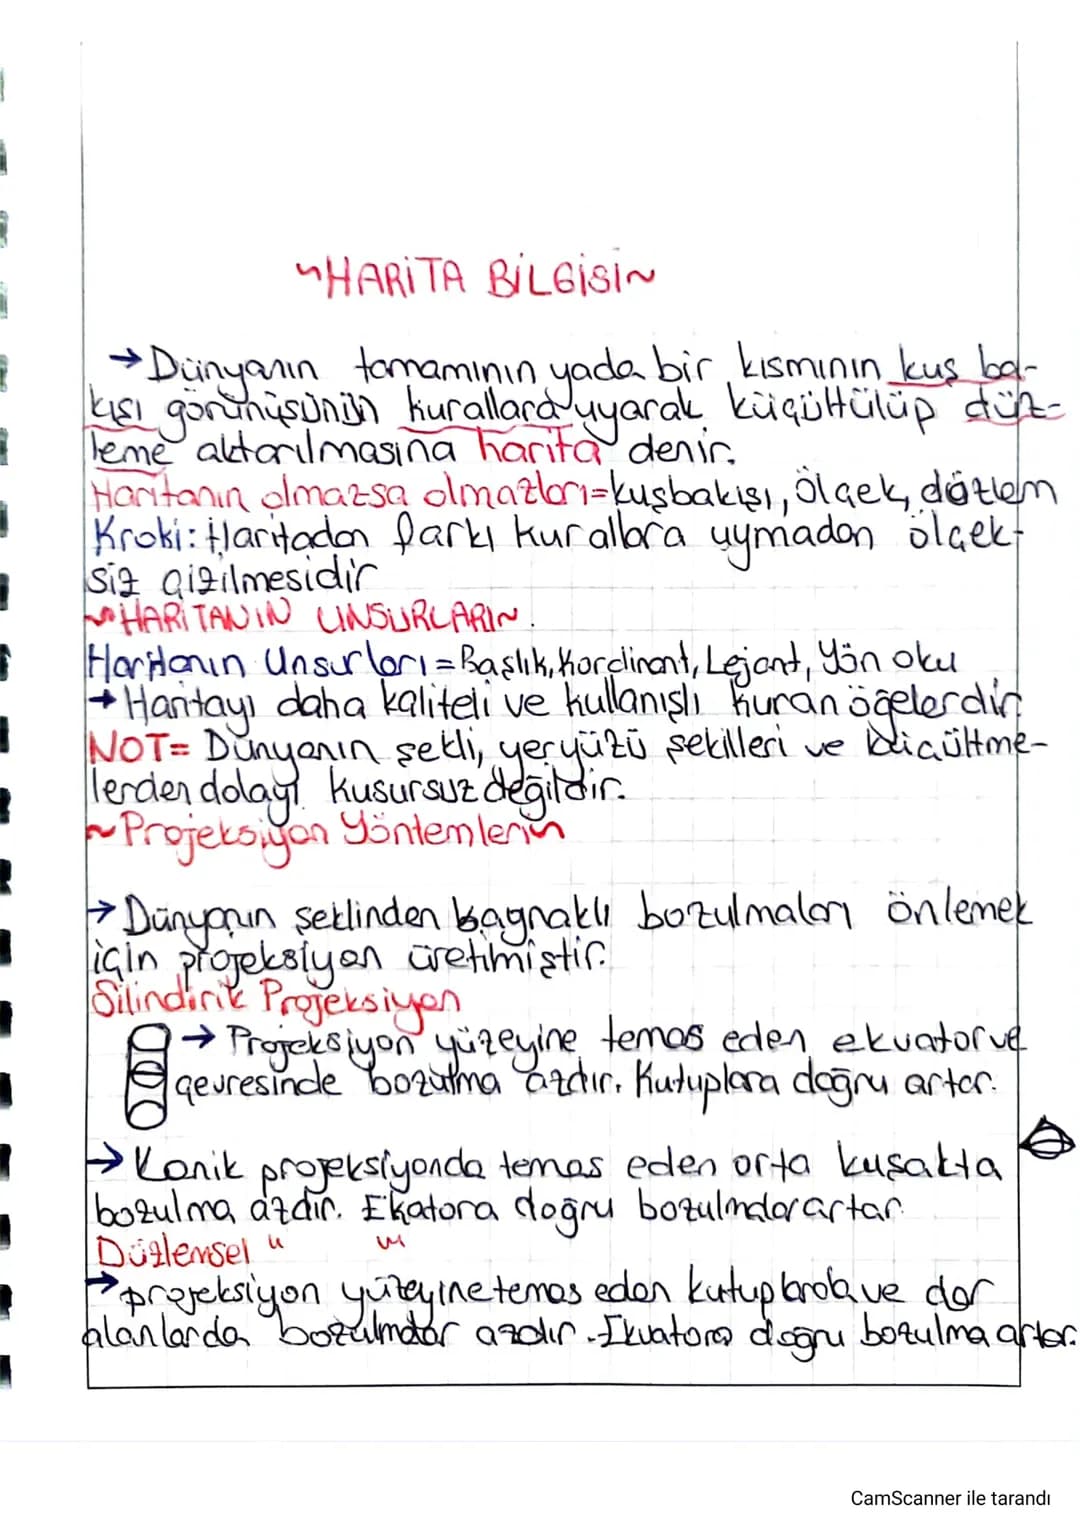 ~HARİTA BİLGİSİ~
→ Dünyanın tamamının yada bir kısmının kuş ba-
kışı görünüşünün kurallara uyarak küçültülüp düz-
leme aktarılmasına harita denir.
Haritanın olmazsa olmazları=kuşbakışı, Ölçek, düzlem
Kroki: Haritadan farkı kurallara uymadan ölçek-
siz çizilmesidir
~HARİTANIN UNSURLARI~
Haritanın Unsurları=Başlık, Kordinant, Lejant, Yön oku
→ Haritayı daha kaliteli ve kullanışlı kuran öğelerdir.
NOT= Dünyanın şekli, yeryüzü şekilleri ve küçültme-
lerden dolayı kusursuz değildir.
~Projeksiyon Yöntemleri~
→ Dünyanın şeklinden kaynaklı bozulmaları önlemek
için projeksiyon üretilmiştir.
Silindirik Projeksiyon
→ Projeksiyon yüzeyine temas eden ekvator ve
çevresinde bozulma azdır. Kutuplara doğru artar.
→ Konik projeksiyonda temas eden orta kuşakta
bozulma azdır. Ekatora doğru bozulmalar artar.
Düzlemsel " "
→ projeksiyon yüzeyine temas eden kutuplarda ve dar
alanlarda bozulmalar azdır. Ekvatora doğru bozulma artar.
CamScanner ile tarandı